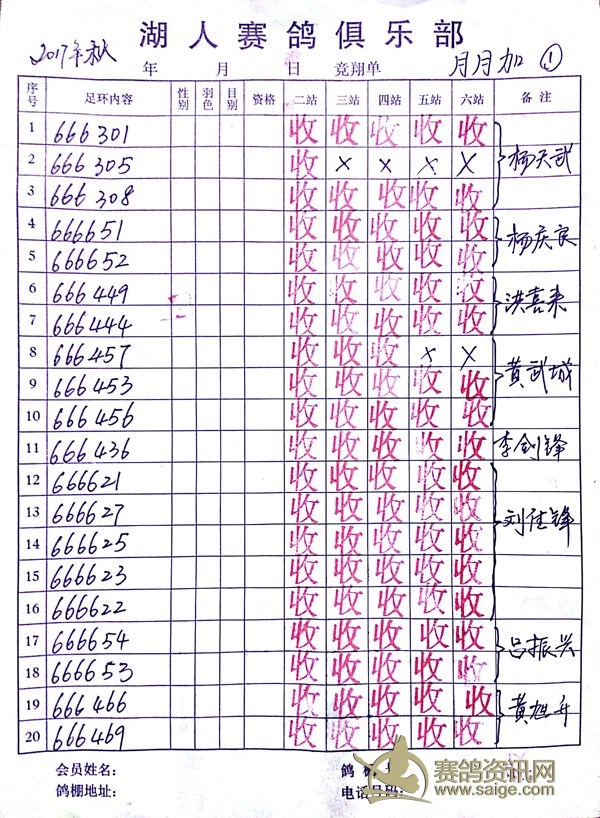 湖人赛鸽俱乐部
2017年秋 年 月 日 竞翔单 月月加 ①
序号 足环内容 性别 羽色 目别 资格 二站 三站 四站 五站 六站 备注
1 666301 收 收 收 收 收
2 666305 收 × × × × 杨天武
3 666308 收 收 收 收 收
4 666651 收 收 收 收 收 杨庆良
5 666652 收 收 收 收 收
6 666449 收 收 收 收 收 洪喜来
7 666444 收 收 收 收 收
8 666457 收 收 收 × × 黄武城
9 666453 收 收 收 收 收
10 666456 收 收 收 收 收
11 666436 收 收 收 收 收 李剑锋
12 666621 收 收 收 收 收
13 666627 收 收 收 收 收 刘佳锋
14 666625 收 收 收 收 收
15 666623 收 收 收 收 收
16 666622 收 收 收 收 收
17 666654 收 收 收 收 收 吕振兴
18 666653 收 收 收 收 收
19 666466 收 收 收 收 收 黄旭升
20 666469 收 收 收 收 收
会员姓名: 鸽棚
鸽棚地址: 电话号码:
赛鸽资讯网
www.saige.com